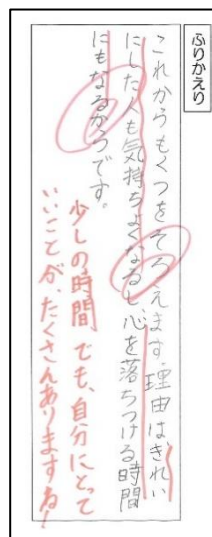 ふりかえり
これからもくつをそろえます。理由は、きれい
にした人も気持ちよくなるし、心を落ちつける時間
にもなるからです。
少しの時間でも、自分にとって
いいことが、たくさんありますね！